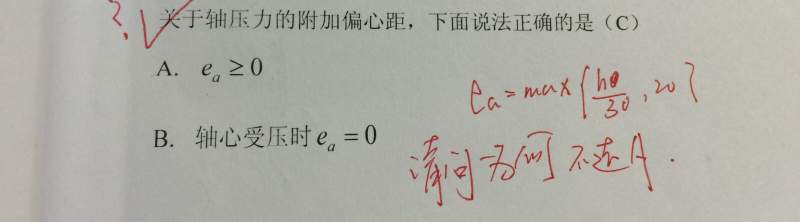 ?
关于轴压力的附加偏心距，下面说法正确的是（C）
A. eₐ ≥ 0
eₐ = max { h/30 , 20 }
B. 轴心受压时 eₐ = 0
请问为何不选A.